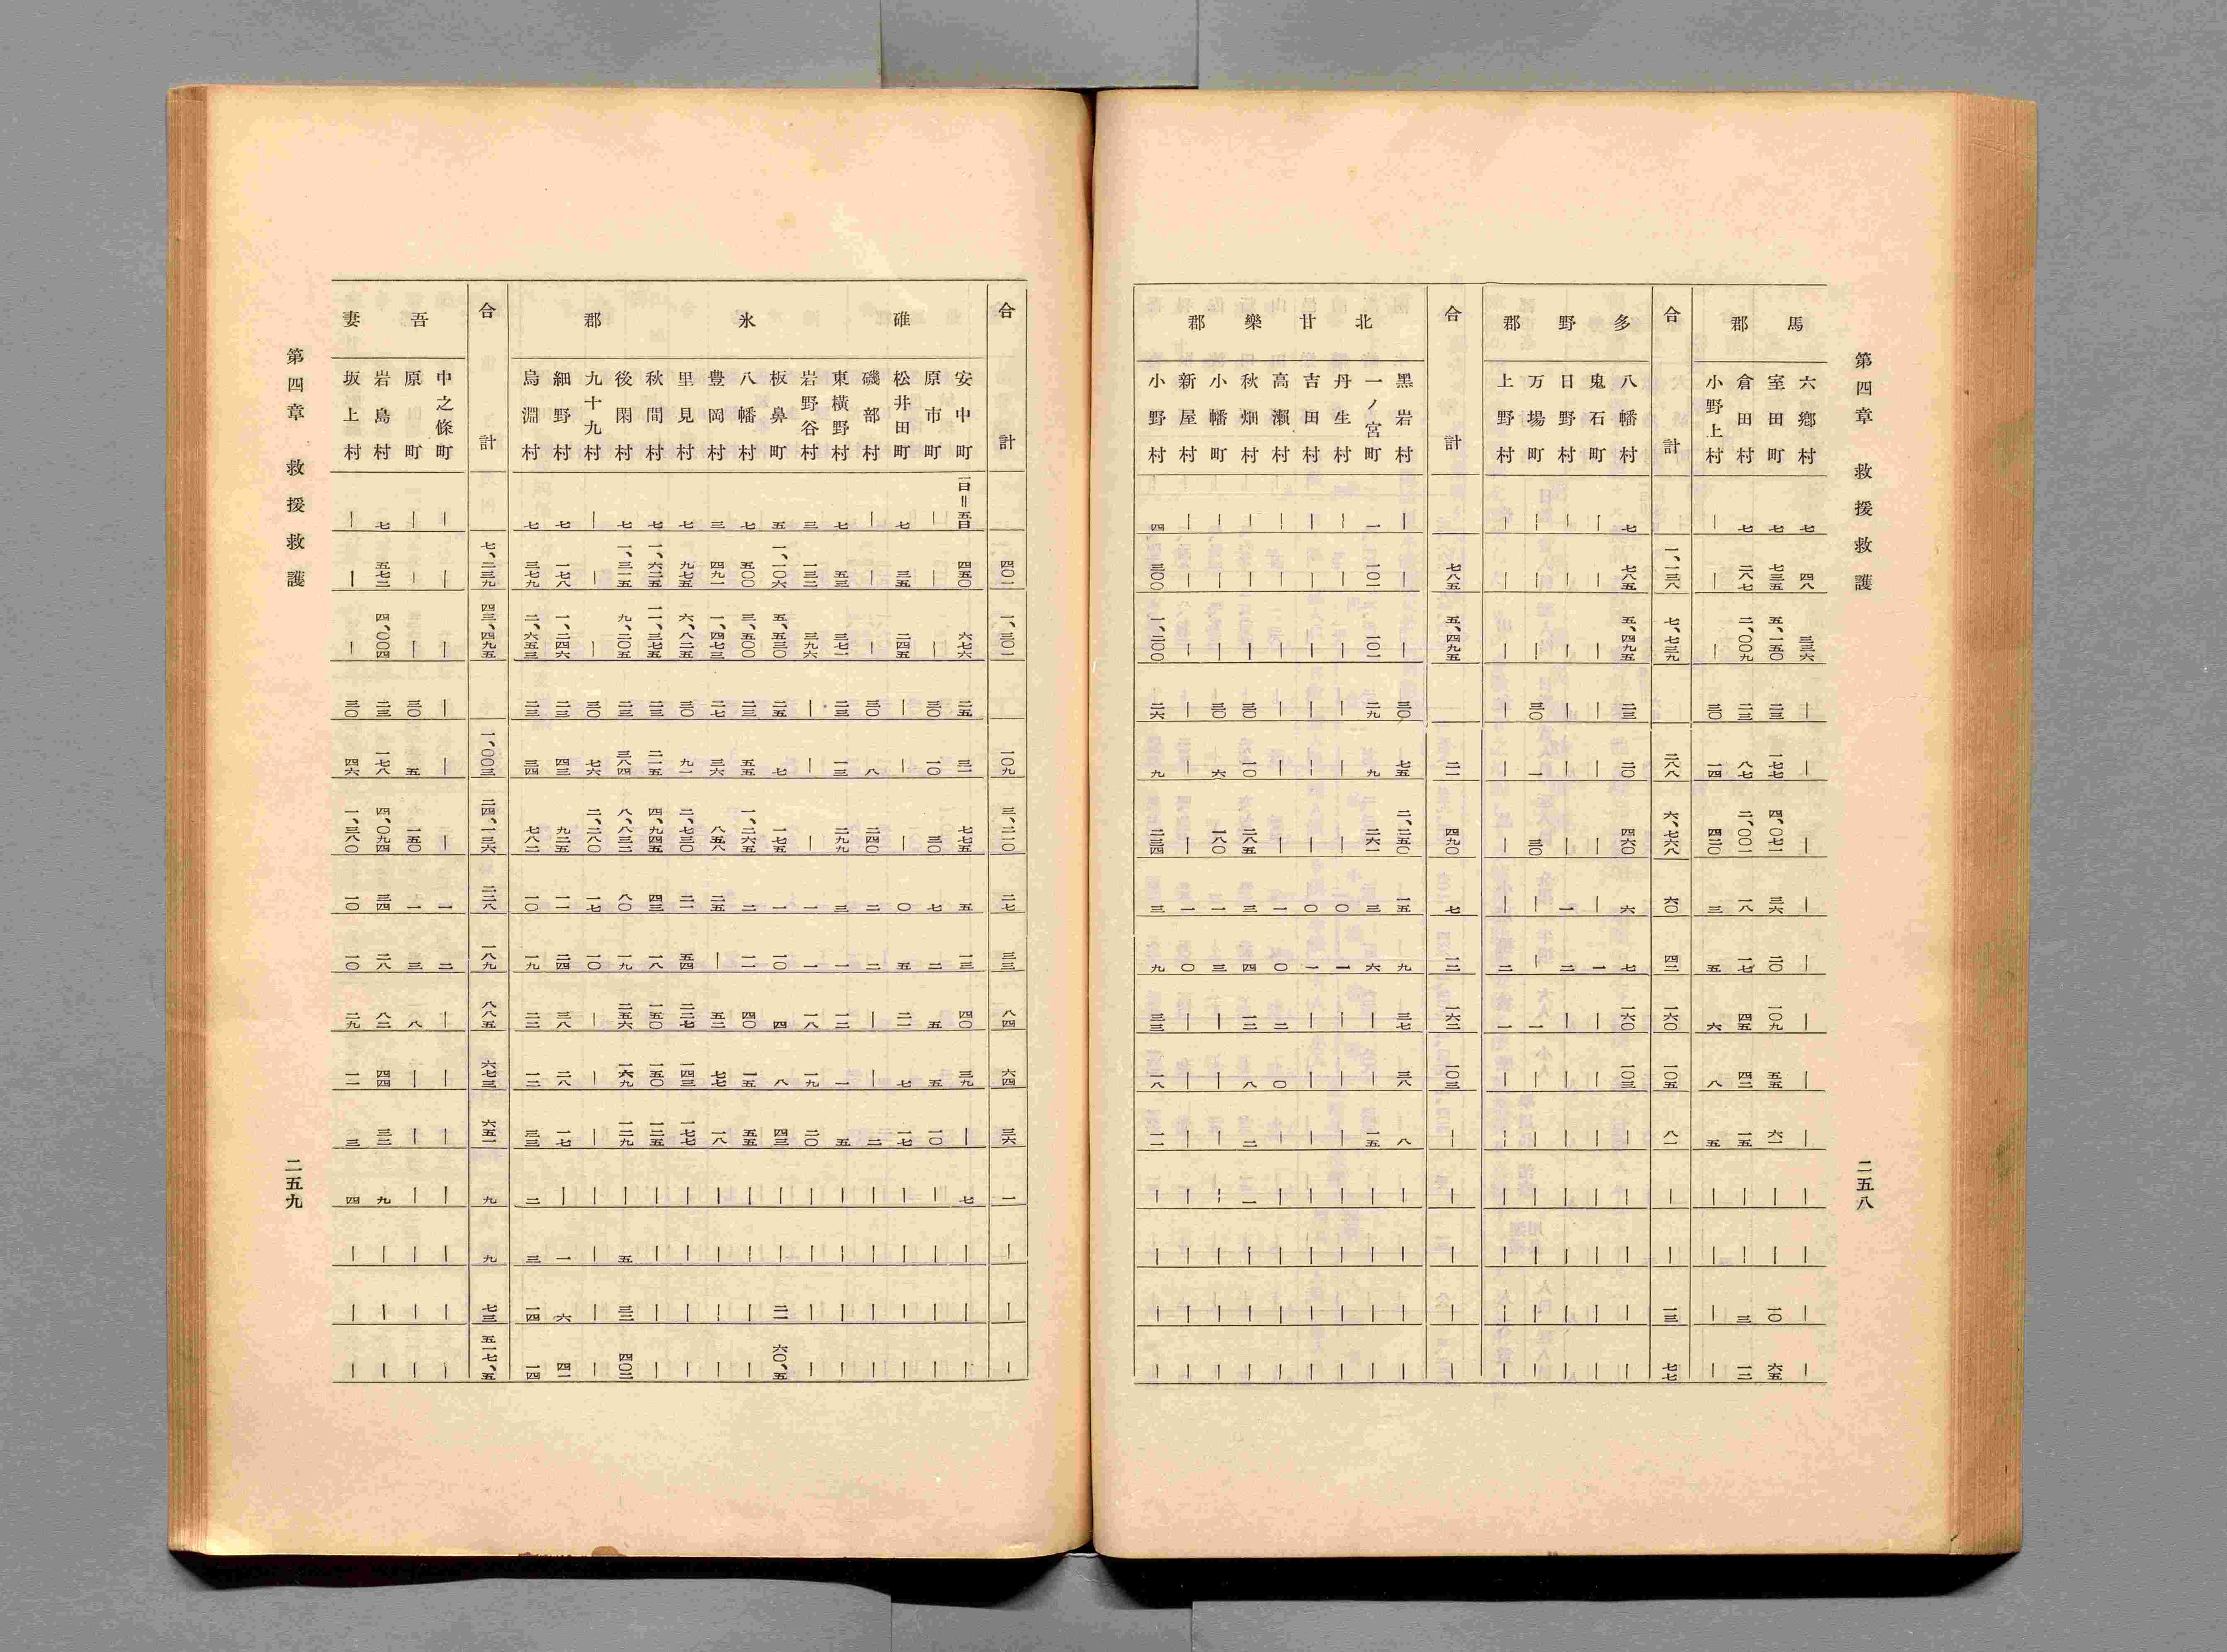 第四章　救援救護
馬郡
六郷村 七 四八 三三六 ｜ ｜ ｜ ｜ ｜ ｜ ｜ ｜ ｜ ｜ ｜ ｜
室田町 七 七三五 五、一五〇 二三 一七七 四、〇七一 三六 二〇 一〇九 五五 六一 ｜ ｜ 一〇 六五
倉田村 七 二八七 二、〇〇九 二三 八七 二、〇〇一 一八 一七 四五 四二 一五 ｜ ｜ 三 一二
小野上村 ｜ ｜ ｜ 三〇 一四 四二〇 三 五 六 八 五 ｜ ｜ ｜ ｜
合計 一、一三八 七、七三九 二八八 六、七六八 六〇 四二 一六〇 一〇五 八一 ｜ ｜ 一三 七七
多野郡
八幡村 七 七八五 五、四九五 二三 二〇 四六〇 六 七 一六〇 一〇三 ｜ ｜ ｜ ｜ ｜
鬼石町 ｜ ｜ ｜ ｜ ｜ ｜ ｜ 一 ｜ ｜ ｜ ｜ ｜ ｜ ｜
日野村 ｜ ｜ ｜ ｜ ｜ ｜ 一 二 ｜ ｜ ｜ ｜ ｜ ｜ ｜
万場町 ｜ ｜ ｜ 三〇 一 三〇 ｜ ｜ 一 ｜ ｜ ｜ ｜ ｜ ｜
上野村 ｜ ｜ ｜ ｜ ｜ ｜ ｜ 二 一 ｜ ｜ ｜ ｜ ｜ ｜
合計 七八五 五、四九五 二一 四九〇 七 一二 一六二 一〇三 ｜ ｜ ｜ ｜ ｜
北甘樂郡
黑岩村 ｜ ｜ ｜ 三〇 七五 二、二五〇 一五 九 三七 三八 八 ｜ ｜ ｜ ｜
一ノ宮町 一 一〇一 一〇一 二九 九 二六一 三 六 ｜ ｜ 一五 ｜ ｜ ｜ ｜
丹生村 ｜ ｜ ｜ ｜ ｜ ｜ 〇 一 ｜ ｜ ｜ ｜ ｜ ｜ ｜
吉田村 ｜ ｜ ｜ ｜ ｜ ｜ 〇 一 ｜ ｜ ｜ ｜ ｜ ｜ ｜
高瀬村 ｜ ｜ ｜ ｜ ｜ ｜ 一 〇 二 〇 ｜ ｜ ｜ ｜ ｜
秋畑村 ｜ ｜ ｜ 三〇 一〇 二八五 三 四 一二 八 二 一 ｜ ｜ ｜
小幡町 ｜ ｜ ｜ 三〇 六 一八〇 一 三 ｜ ｜ ｜ ｜ ｜ ｜ ｜
新屋村 ｜ ｜ ｜ ｜ ｜ ｜ 一 〇 ｜ ｜ ｜ ｜ ｜ ｜ ｜
小野村 四 三〇〇 一、二〇〇 二六 九 二三四 三 九 三三 一八 一一 ｜ ｜ ｜ ｜
二五八
合計 四〇一 一、三〇一 一〇九 三、二一〇 二七 三三 八四 六四 三六 一 ｜ ｜ ｜
碓氷郡
安中町 一日＝五日 四五〇 六七六 二五 三一 七七五 五 一三 四〇 三九 ｜ 七 ｜ ｜ ｜
原市町 ｜ ｜ ｜ 三〇 一〇 三〇 七 二 五 五 一〇 ｜ ｜ ｜ ｜
松井田町 七 三五 二四五 ｜ ｜ ｜ 〇 五 二一 七 一七 ｜ ｜ ｜ ｜
磯部村 ｜ ｜ ｜ 三〇 八 二四〇 二 二 ｜ ｜ 二 ｜ ｜ ｜ ｜
東横野村 七 五三 三七一 二三 一三 二九九 三 一 一二 一 五 ｜ ｜ ｜ ｜
岩野谷村 三 一三二 三九六 ｜ ｜ ｜ 一 一 一八 一九 二〇 ｜ ｜ ｜ ｜
板鼻町 五 一、一〇六 五、五三〇 二五 七 一七五 一 一〇 四 八 四三 ｜ ｜ 二一 六〇、五
八幡村 七 五〇〇 三、五〇〇 二三 五五 一、二六五 二 一一 四〇 一五 五五 ｜ ｜ ｜ ｜
豊岡村 三 四九一 一、四七三 二七 三六 八五八 二五 ｜ 五二 七七 一八 ｜ ｜ ｜ ｜
里見村 七 九七五 六、八二五 三〇 九一 二、七三〇 二一 五四 二二七 一四三 一七七 ｜ ｜ ｜ ｜
秋間村 七 一、六二五 一一、三七五 二三 二一五 四、九四五 四三 一八 一五〇 一五〇 一二五 ｜ ｜ ｜ ｜
後閑村 七 一、三一五 九、二〇五 二三 三八四 八、八三二 八〇 一九 二五六 一六九 一二九 ｜ 五 三二 四〇二
九十九村 ｜ ｜ ｜ 三〇 七六 二、二八〇 一七 一〇 ｜ ｜ ｜ ｜ ｜ ｜ ｜
細野村 七 一七八 一、二四六 二三 四三 九二五 一一 二四 三八 二八 一七 ｜ 一 六 四一
烏淵村 七 三七九 二、六五三 二三 三四 七八二 一〇 一九 二二 一二 三三 二 三 一四 一四
合計 七、二三九 四三、四九五 一、〇〇三 二四、一三六 二二八 一八九 八八五 六七三 六五一 九 九 七三 五一七、五
吾妻
中之條町 ｜ ｜ ｜ ｜ ｜ ｜ 一 二 ｜ ｜ ｜ ｜ ｜ ｜ ｜
原町 ｜ ｜ ｜ 三〇 五 一五〇 一 三 八 ｜ ｜ ｜ ｜ ｜ ｜
岩島村 七 五七二 四、〇〇四 二三 一七八 四、〇九四 三四 二八 八二 四四 三二 九 ｜ ｜ ｜
坂上村 ｜ ｜ ｜ 三〇 四六 一、三八〇 一〇 一〇 二九 一二 三 四 ｜ ｜ ｜
第四章　救援救護
二五九